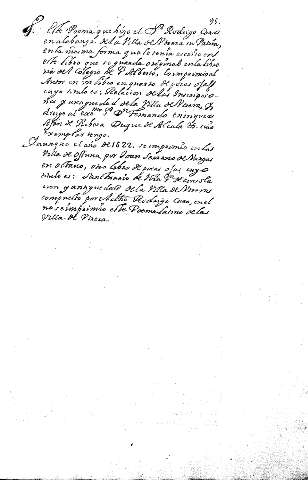 95.
Este Poema que hizo el Sr. Rodrigo Caro
en alabanza de la Villa de Utrera su Patria,
en la misma forma que lo tenia escrito en el
libro que se guarda original en la libre
ria del Colegio de Sn. Alberto, lo imprimio el
Autor en un libro en quarto de pocas ojas
cuyo titulo es: Relacion de las Inscripcio-
nes y antiguedad de la Villa de Utrera,
dirigido al exmo. Sr. Dn. Fernando enrriquez
Afan de Ribera Duque de Alcala &c. cuio
exemplar tengo.
Y aunque el año de 1622. se imprimio en la
Villa de Osuna por Joan Serrano de Vargas
en octavo, otro libro de pocas ojas cuyo
titulo es: Santuario de Nra. Sra. de Consola
cion y antiguedad de la Villa de Utrera
compuesto por el Licdo. Rodrigo Caro, en el
no se imprimio este Poema latino de la
Villa de Utrera.